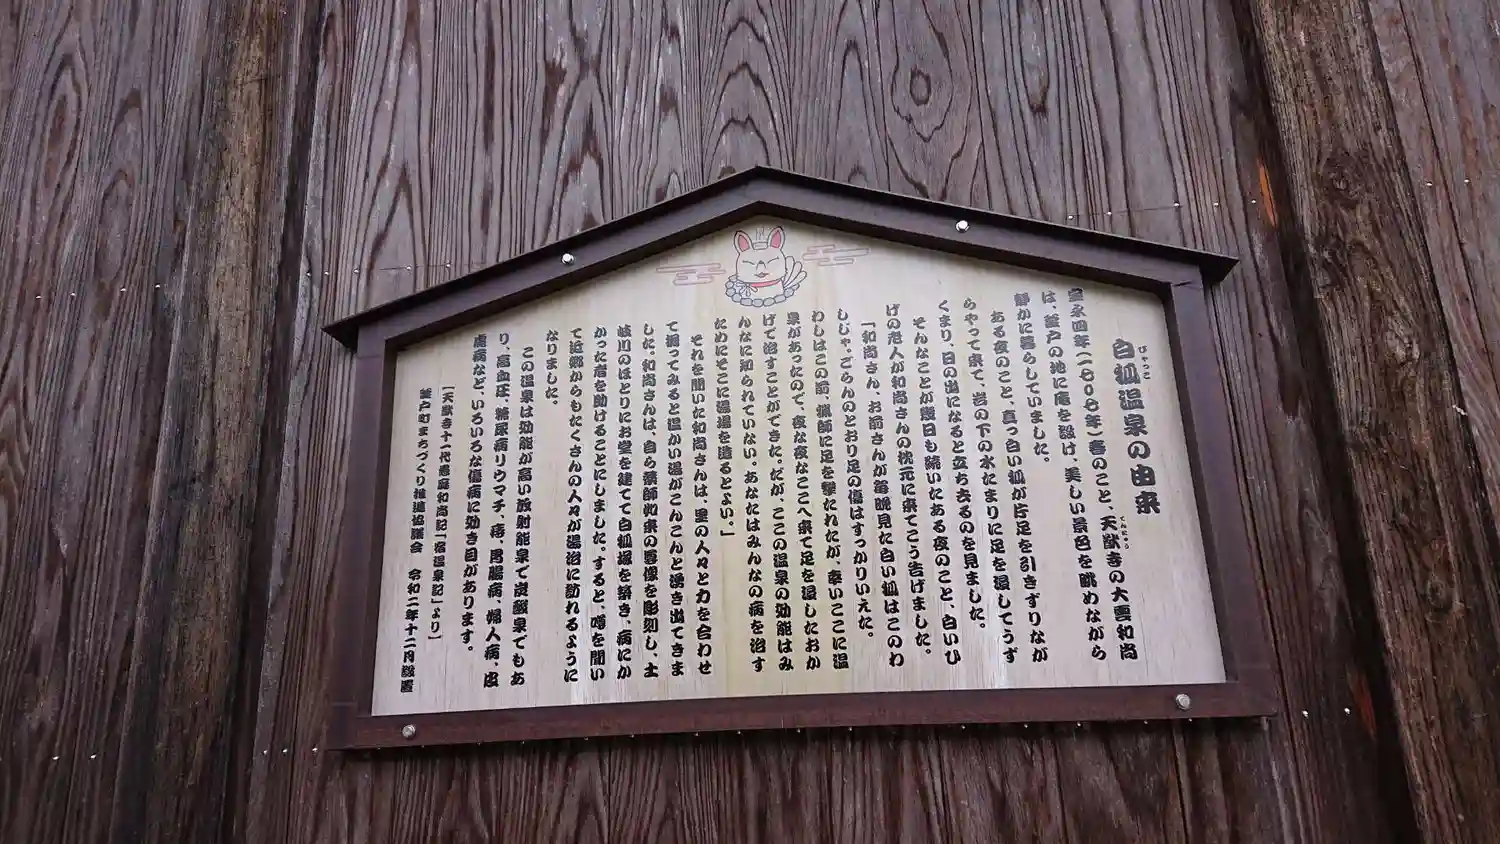 白狐温泉の由来
びゃっこ
宝永四年(一七〇七年)春のこと、天猷寺の大雲和尚
てんにゅう
は、釜戸の地に庵を設け、美しい景色を眺めながら
静かに暮らしていました。
ある夜のこと、真っ白い狐が片足を引きずりなが
らやって来て、岩の下の水たまりに足を浸してうず
くまり、日の出になると立ち去るのを見ました。
そんなことが幾日も続いたある夜のこと、白いひ
げの老人が和尚さんの枕元に来てこう告げました。
「和尚さん、お前さんが毎晩見た白い狐はこのわ
しじゃ。ごらんのとおり足の傷はすっかりいえた。
わしはこの前、猟師に足を撃たれたが、幸いここに温
泉があったので、夜な夜なここへ来て足を浸したおか
げで治すことができた。だが、ここの温泉の効能はみ
んなに知られていない。あなたはみんなの病を治す
ためにそこに湯場を造るとよい。」
それを聞いた和尚さんは、里の人々と力を合わせ
て掘ってみると温かい湯がこんこんと湧き出てきま
した。和尚さんは、自ら薬師如来の尊像を彫刻し、土
岐川のほとりにお堂を建てて白狐塚を築き、病にか
かった者を助けることにしました。すると、噂を聞い
て近郷からもたくさんの人々が湯治に訪れるように
なりました。
この温泉は効能が高い放射能泉で炭酸泉でもあ
り、高血圧、糖尿病リウマチ、痔、胃腸病、婦人病、皮
膚病など、いろいろな傷病に効き目があります。
(天猷寺十一代 和尚記「宿温泉記」より)
釜戸町まちづくり推進協議会 令和二年十二月設置